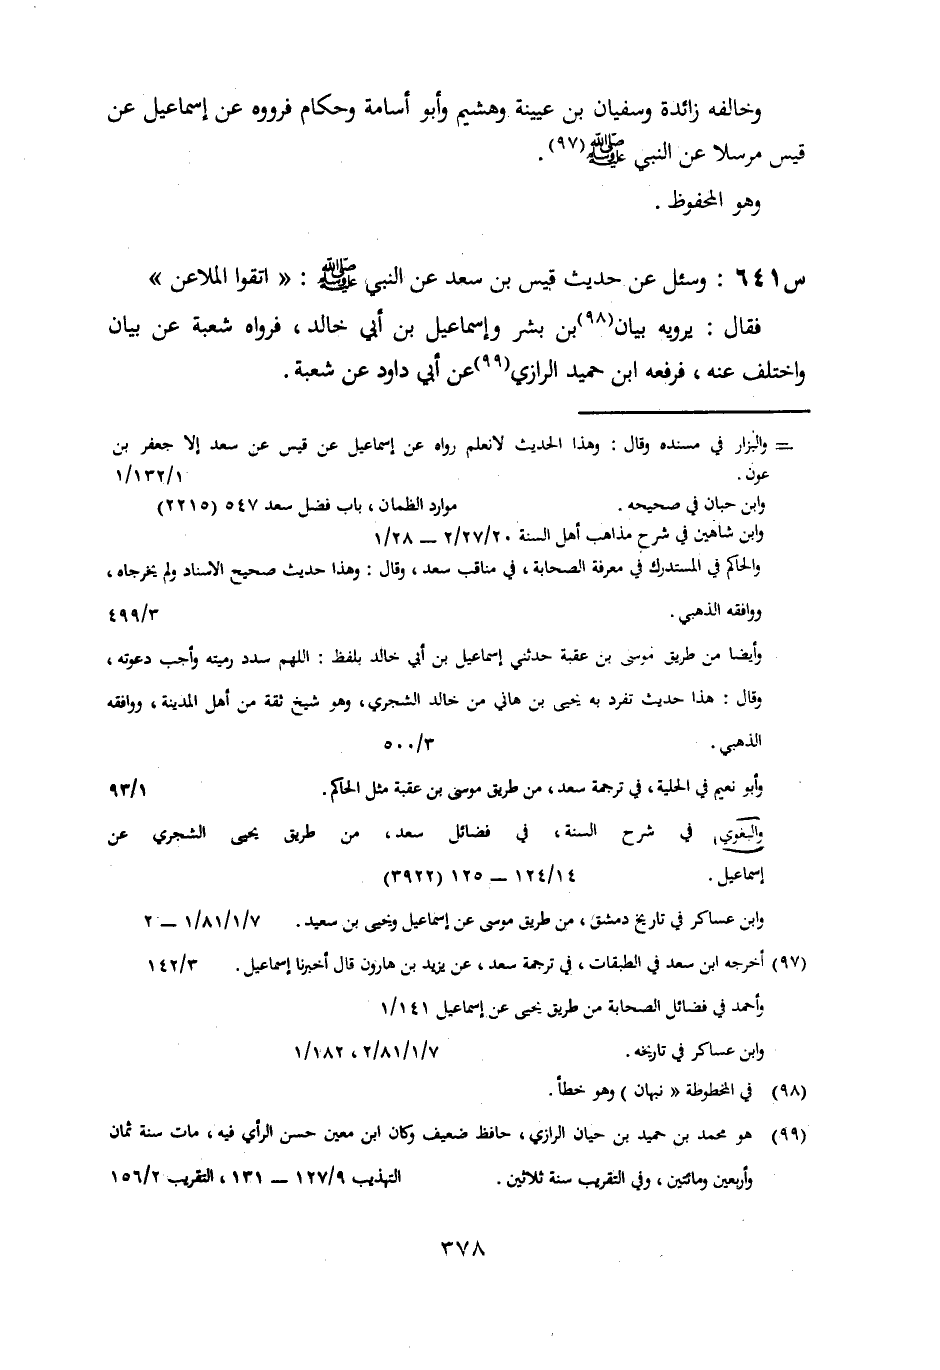 وخالفه زائدة وسفيان بن عيينة وهشيم وأبو أسامة وحكام فرووه عن إسماعيل عن
قيس مرسلا عن النبي ﷺ(٩٧) .
وهو المحفوظ .
س٦٤١ : وسئل عن حديث قيس بن سعد عن النبي ﷺ : « اتقوا الملاعن »
فقال : يرويه بيان(٩٨)بن بشر وإسماعيل بن أبي خالد ، فرواه شعبة عن بيان
واختلف عنه ، فرفعه ابن حميد الرازي(٩٩)عن أبي داود عن شعبة .
= والبزار في مسنده وقال : وهذا الحديث لانعلم رواه عن إسماعيل عن قيس عن سعد إلا جعفر بن
عون . ١/١٣٢/١
وابن حبان في صحيحه . موارد الظمان ، باب فضل سعد ٥٤٧ (٢٢١٥)
وابن شاهين في شرح مذاهب أهل السنة ٢/٢٧/٢٠ — ١/٢٨
والحاكم في المستدرك في معرفة الصحابة ، في مناقب سعد ، وقال : وهذا حديث صحيح الاسناد ولم يخرجاه ،
ووافقه الذهبي . ٤٩٩/٣
وأيضا من طريق موسى بن عقبة حدثني إسماعيل بن أبي خالد بلفظ : اللهم سدد رميته وأجب دعوته ،
وقال : هذا حديث تفرد به يحيى بن هاني من خالد الشجري، وهو شيخ ثقة من أهل المدينة ، ووافقه
الذهبي . ٥٠٠/٣
وأبو نعيم في الحلية ، في ترجمة سعد ، من طريق موسى بن عقبة مثل الحاكم . ٩٣/١
والبغوي في شرح السنة ، في فضائل سعد ، من طريق يحيى الشجري عن
إسماعيل . ١٢٤/١٤ — ١٢٥ (٣٩٢٢)
وابن عساكر في تاريخ دمشق ، من طريق موسى عن إسماعيل ويحيى بن سعيد . ١/٨١/١/٧ — ٢
(٩٧) أخرجه ابن سعد في الطبقات ، في ترجمة سعد ، عن يزيد بن هارون قال أخبرنا إسماعيل . ١٤٢/٣
وأحمد في فضائل الصحابة من طريق يحيى عن إسماعيل ١/١٤١
وابن عساكر في تاريخه . ٢/٨١/١/٧ ، ١/١٨٢
(٩٨) في المخطوطة « نبهان ) وهو خطأ .
(٩٩) هو محمد بن حميد بن حيان الرازي ، حافظ ضعيف وكان ابن معين حسن الرأي فيه ، مات سنة ثمان
وأربعين ومائتين ، وفي التقريب سنة ثلاثين . التهذيب ١٢٧/٩ — ١٣١ ، التقريب ١٥٦/٢
٣٧٨